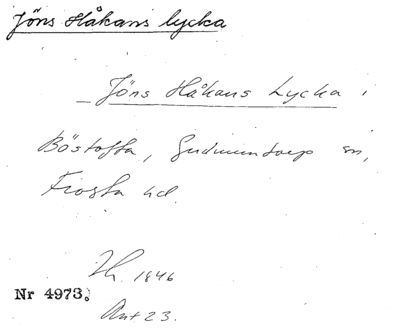 Jöns Håkans lycka
Jöns Håkans Lycka i
Böstofta, Gudmuntorp sn,
Frosta hd.
1846
Nr 4973.
Ant 23.